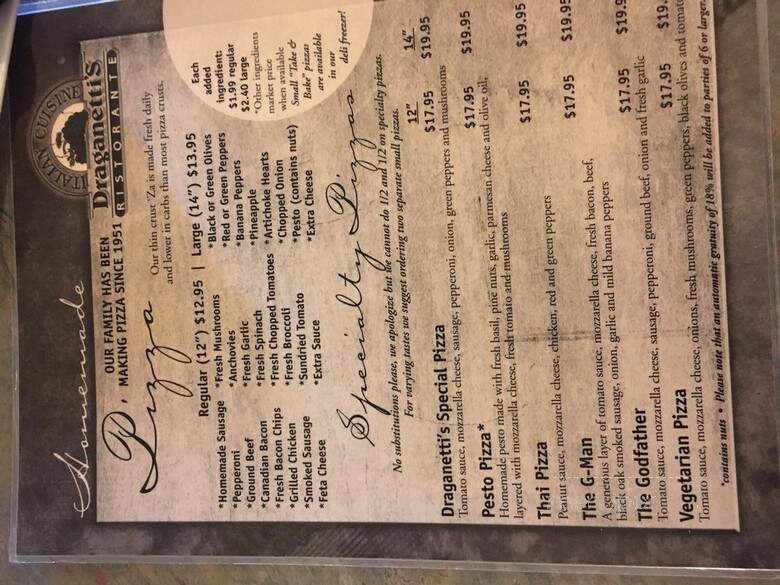 Homemade
ITALIAN CUISINE
Draganetti's
RISTORANTE
OUR FAMILY HAS BEEN
MAKING PIZZA SINCE 1951
Pizza
Our thin crust 'Za is made fresh daily
and lower in carbs than most pizza crusts.
Regular (12") $12.95 | Large (14") $13.95
*Homemade Sausage
*Pepperoni
*Ground Beef
*Canadian Bacon
*Fresh Bacon Chips
*Grilled Chicken
*Smoked Sausage
*Feta Cheese
*Fresh Mushrooms
*Anchovies
*Fresh Garlic
*Fresh Spinach
*Fresh Chopped Tomatoes
*Fresh Broccoli
*Sundried Tomato
*Extra Sauce
*Black or Green Olives
*Red or Green Peppers
*Banana Peppers
*Pineapple
*Artichoke Hearts
*Chopped Onion
*Pesto (contains nuts)
*Extra Cheese
Each
added
ingredient:
$1.99 regular
$2.40 large
*Other ingredients
market price
when available
Small "Take &
Bake" pizzas
are available
in our
deli freezer!
Specialty Pizzas
No substitutions please, we apologize but we cannot do 1/2 and 1/2 on specialty pizzas.
For varying tastes we suggest ordering two separate small pizzas.
12" 14"
Draganetti's Special Pizza $17.95 $19.95
Tomato sauce, mozzarella cheese, sausage, pepperoni, onion, green peppers and mushrooms
Pesto Pizza* $17.95 $19.95
Homemade pesto made with fresh basil, pine nuts, garlic, parmesan cheese and olive oil,
layered with mozzarella cheese, fresh tomato and mushrooms
Thai Pizza $17.95 $19.95
Peanut sauce, mozzarella cheese, chicken, red and green peppers
The G-Man $17.95 $19.95
A generous layer of tomato sauce, mozzarella cheese, fresh bacon, beef,
black oak smoked sausage, onion, garlic and mild banana peppers
The Godfather $17.95 $19.9
Tomato sauce, mozzarella cheese, sausage, pepperoni, ground beef, onion and fresh garlic
Vegetarian Pizza $17.95 $19.
Tomato sauce, mozzarella cheese, onions, fresh mushrooms, green peppers, black olives and tomato
*contains nuts * Please note that an automatic gratuity of 18% will be added to parties of 6 or larger.